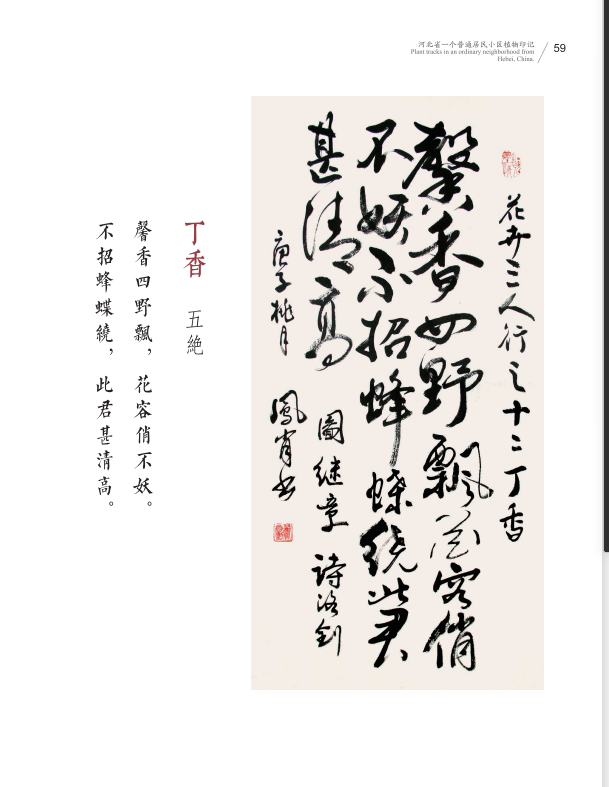 河北省一个普通居民小区植物印记
Plant tracks in an ordinary neighborhood from
Hebei, China.
59
花卉三人行之十二丁香
馨香四野飘花容俏
不妖不招蜂蝶绕此君
甚清高
圖继章 詩洛剑
庚子桃月 鳳肖书
丁香 五絶
馨香四野飄，花容俏不妖。
不招蜂蝶繞，此君甚清高。